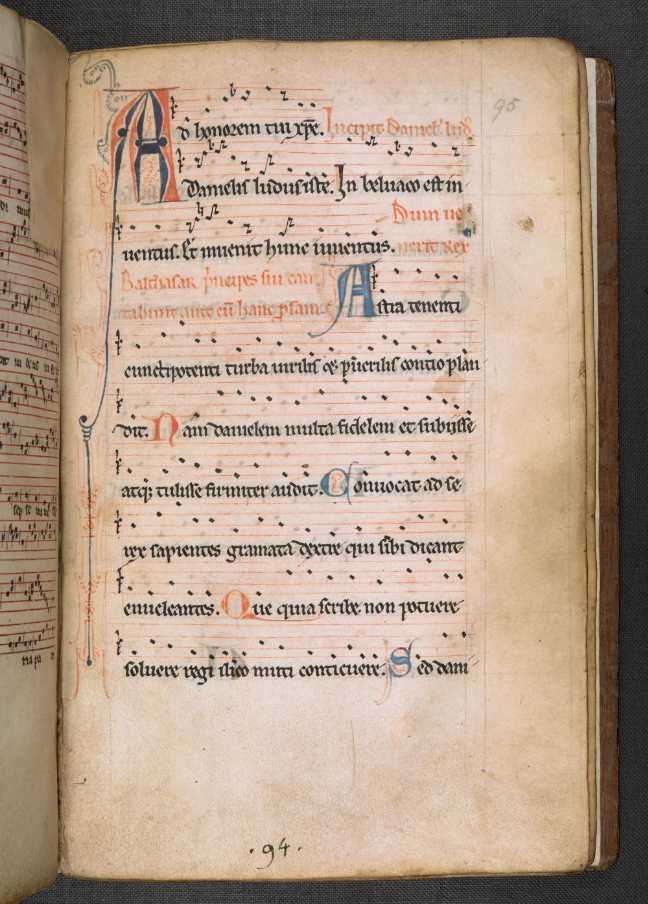 95
Ad honorem tui xpe. Incipit Danielˀ ludꝰ
Danielis ludus iste. In beluaco est in
Dum ue
uentus. Et inuenit hunc iuuentus. nerit Rex
Balthasar principes sui can
tabunt ante eū hanc ꝓsam. Astra tenenti
cunctipotenti turba uirilis et puerilis contio plau
dit. Nam danielem multa fidelem et subiisse
atqꝫ tulisse firmiter audit. Conuocat ad se
rex sapientes gramata dextre qui sibi dicant
enucleantes. Que quia scribe non potuere
soluere regi ilico muti conticuere. Sed dani
.94.